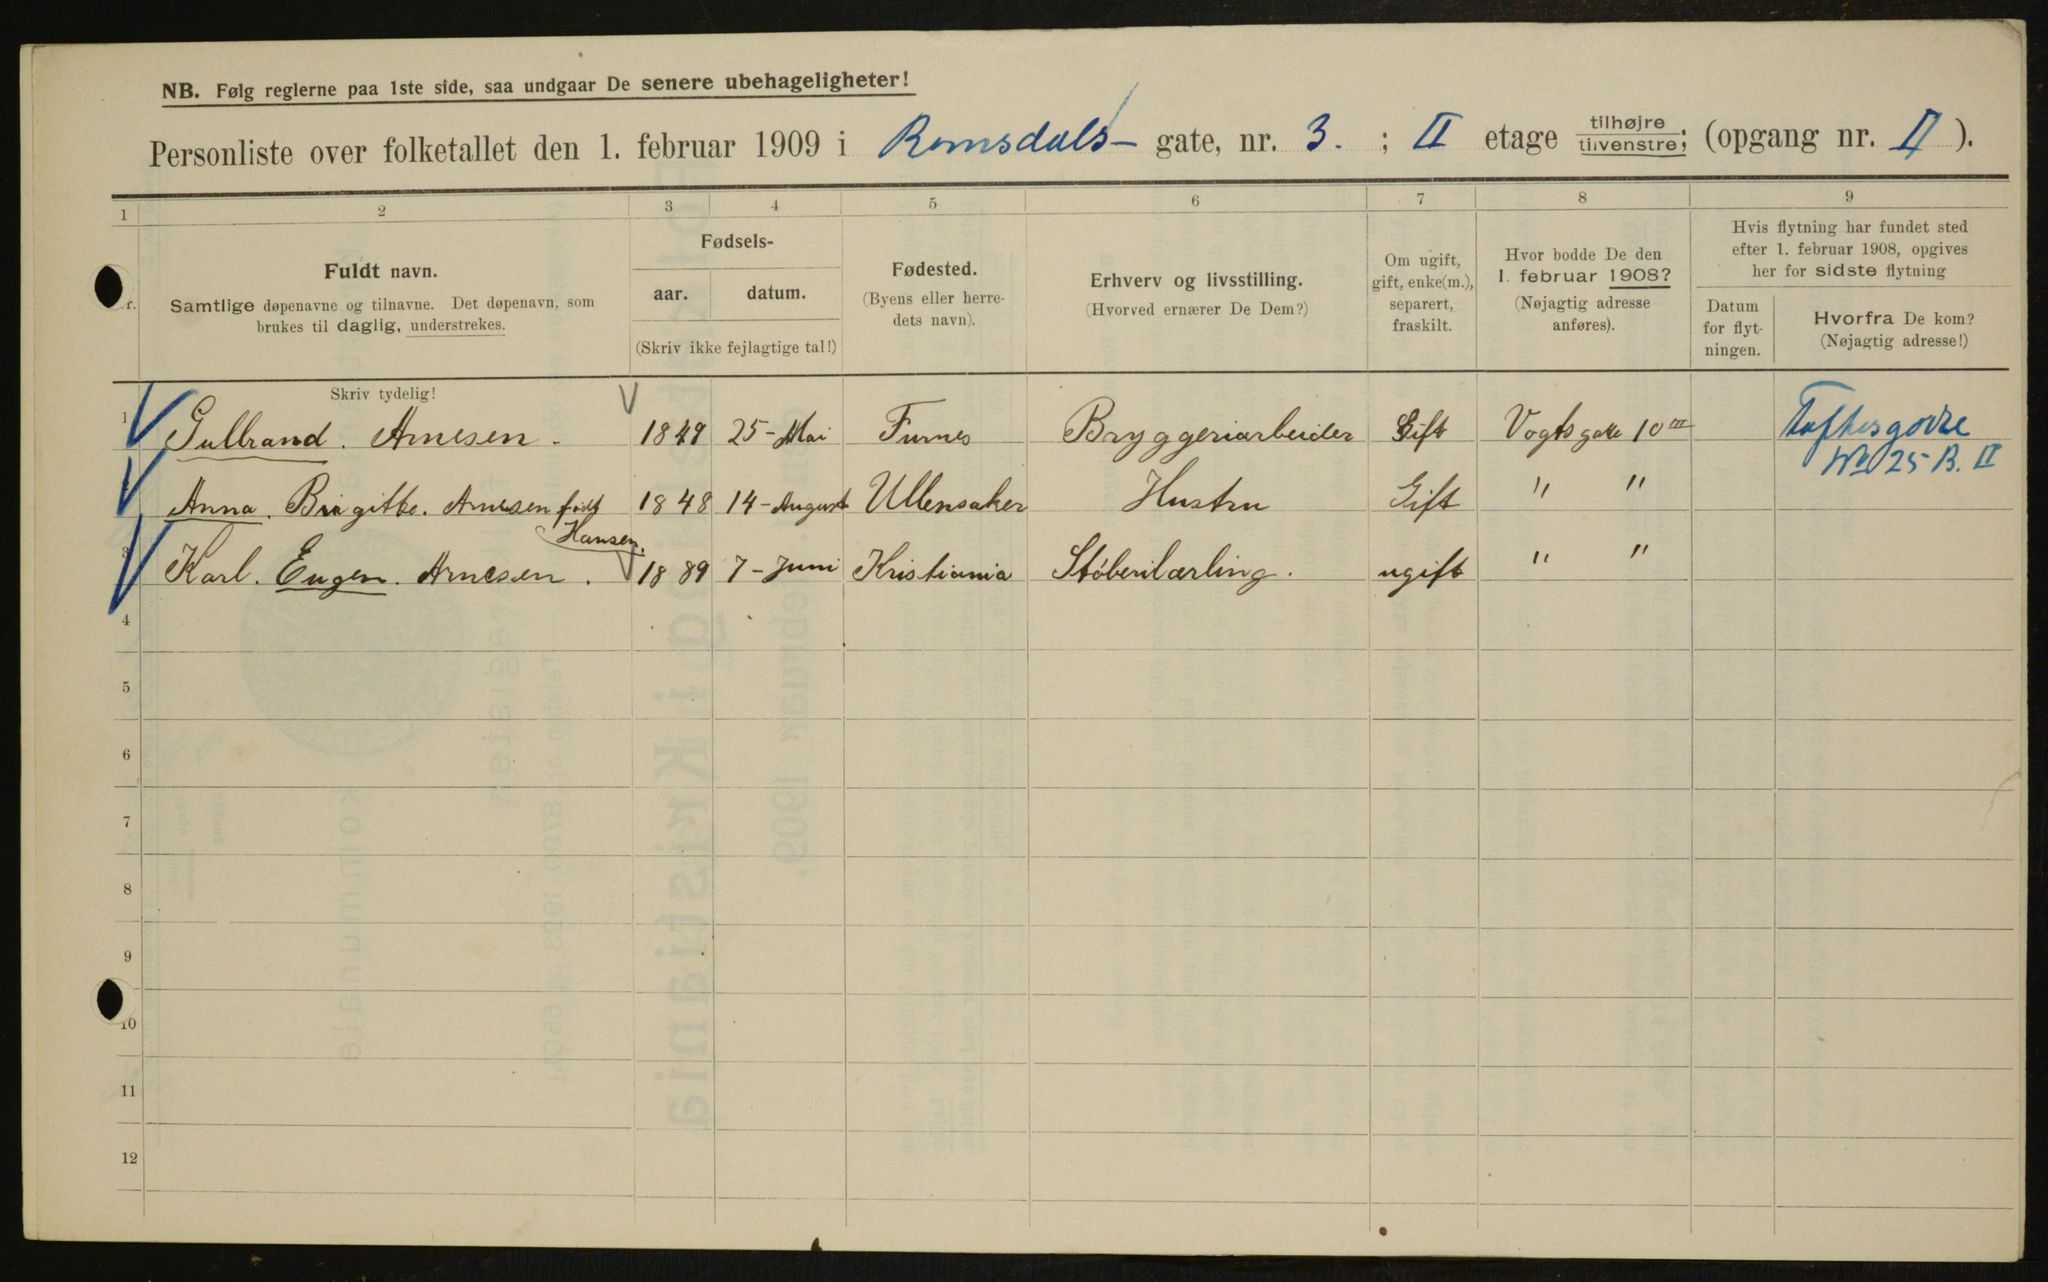 NB. Følg reglerne paa 1ste side, saa undgaar De senere ubehageligheter!
Personliste over folketallet den 1. februar 1909 i Romsdals- gate, nr. 3. ; II etage tilhøjre tilvenstre; (opgang nr. II ).
1 2 3 4 5 6 7 8 9
Nr.
Fuldt navn.
Samtlige døpenavne og tilnavne. Det døpenavn, som
brukes til daglig, understrekes.
Fødsels-
aar. datum.
(Skriv ikke fejlagtige tal!)
Fødested.
(Byens eller herre-
dets navn).
Erhverv og livsstilling.
(Hvorved ernærer De Dem?)
Om ugift,
gift, enke(m.),
separert,
fraskilt.
Hvor bodde De den
1. februar 1908?
(Nøjagtig adresse
anføres).
Hvis flytning har fundet sted
efter 1. februar 1908, opgives
her for sidste flytning
Datum
for flyt-
ningen.
Hvorfra De kom?
(Nøjagtig adresse!)
Skriv tydelig!
1 Gulbrand. Arnesen. 1849 25-Mai Furnes Bryggeriarbeider Gift Vogts gate 10 III
No 25 B. II
Anna. Birgitte. Arnesen født 1848 14-August Ullensaker Hustru Gift " "
Hansen.
3 Karl. Eugen. Arnesen. 1889 7-Juni Kristiania Støberilærling. ugift " "
4
5
6
7
8
9
10
11
12